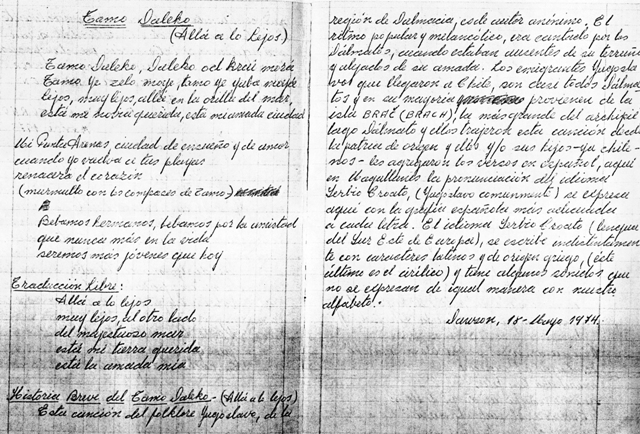 Tamo Daleko
(Allá a lo Lejos)
Tamo Daleko, Daleko od kraй mora
Tamo ye zelo moye, tamo ye
lejos, muy lejos, allá en la orilla del mar,
está mi novia querida, está mi amada ciudad
Mi Punta Arenas, ciudad de ensueño y de amor
cuando yo vuelva a tus playas
renacerá el corazón
(murmullo con los compases de Tamo)
Bebamos hermanos, bebamos por la amistad
que nunca más en la vida
seremos más jóvenes que hoy
Traducción Libre:
Allá a lo lejos
muy lejos, al otro lado
del majestuoso mar
está mi tierra querida
está la amada mía
Historia Breve del Tamo Daleko - (Allá a lo lejos)
Esta canción del folklore Yugoslavo, de la
región de Dalmacia, es de autor anónimo. El
ritmo popular y melancólico, era cantado por los
Dálmatas, cuando estaban ausentes de su terruño
y alejados de su amada. Los emigrantes Yugosla
vos que llegaron a Chile, son casi todos Dálma
tas y en su mayoría provienen de la
isla BRAČ (BRACH), la más grande del archipié
lago Dálmata y ellos trajeron esta canción desde
la patria de origen y ellos y/o sus hijos - ya chile-
nos - les agregaron los versos en español, aquí
en Magallanes la pronunciación del idioma
Serbio Croata, (Yugoslavo comunmente) se expresa
aquí con la grafía española más adecuada
a cada letra. El idioma Serbio Croata (lengua
del Sur Este de Europa), se escribe indistintamen
te con caracteres latinos y de origen griego, (éste
último es el cirílico) y tiene algunos sonidos que
no se expresan de igual manera con nuestro
alfabeto.
Dawson, 18 - Mayo, 1974.